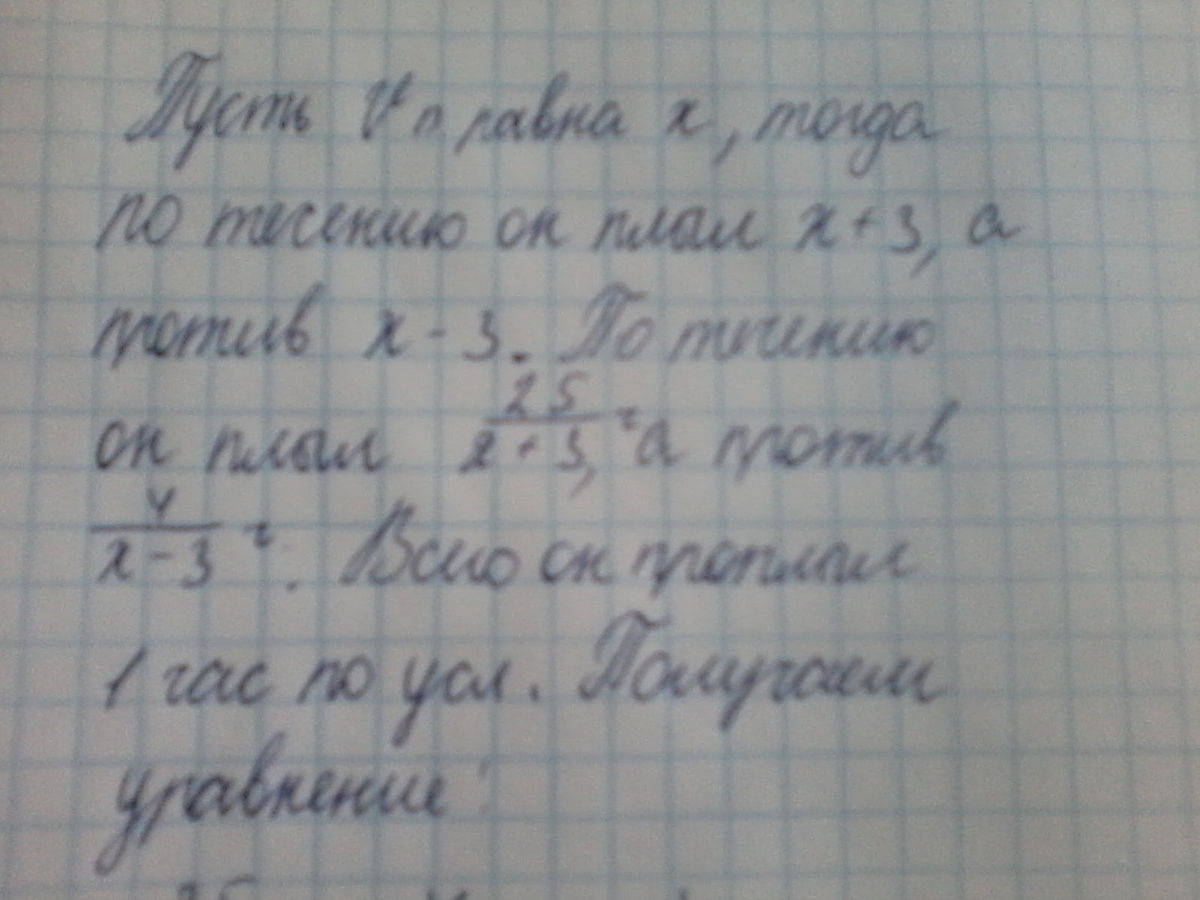 Пусть Vп равна x, тогда
по течению он плыл x+3, а
против x-3. По течению
он плыл 25/(x+3) ч, а против
4/(x-3) ч. Всего он проплыл
1 час по усл. Получаем
уравнение: